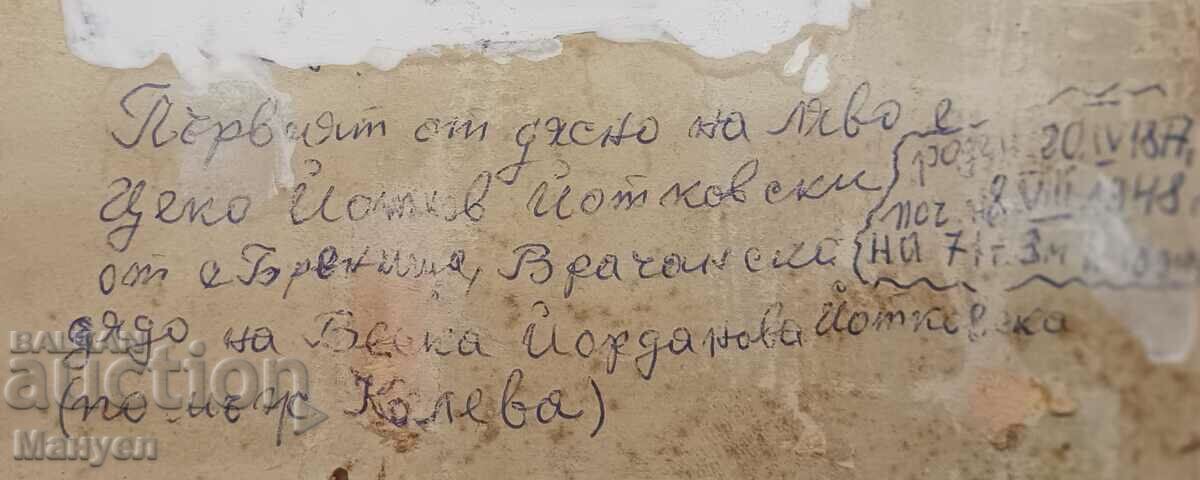 Първият от дясно на ляво е
Цеко Йотков Йотковски
от с Бреница, Врачански
дядо на Веска Йорданова Йотковска
(по мъж Колева)
родн 20 IV 1877
поч. на 8 VIII 1948
на 71 г. 3 м
BALKAN
auction
Мануел